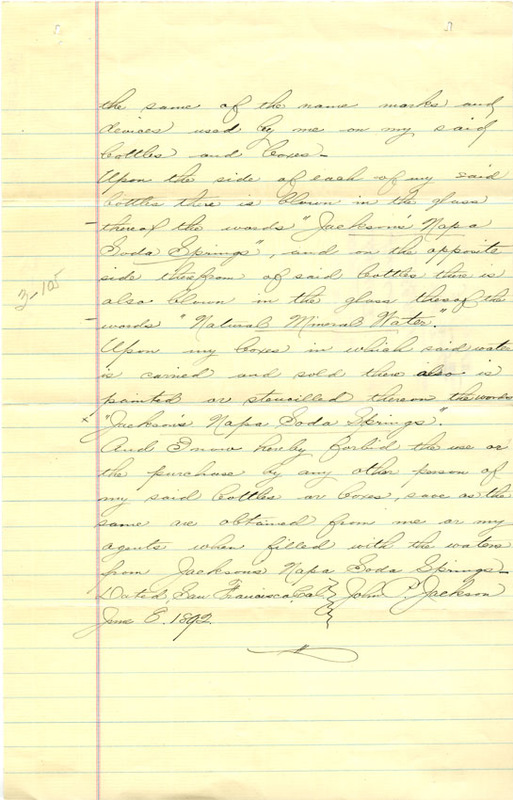 the same of the name marks and
devices used by me on my said
bottles and boxes –
Upon the side of each of my said
bottles there is blown in the glass
thereof the words "Jackson's Napa
Soda Springs", and on the opposite
side therefrom of said bottles there is
also blown in the glass thereof the
3-105
words "Natural Mineral Water."
Upon my boxes in which said water
is carried and sold there also is
painted or stencilled thereon the words
x "Jackson's Napa Soda Springs".
And I now hereby forbid the use or
the purchase by any other person of
my said bottles or boxes, save as the
same are obtained from me or my
agents when filled with the waters
from Jackson's Napa Soda Springs –
Dated San Francisco, Cal. John P. Jackson
June 8. 1892.